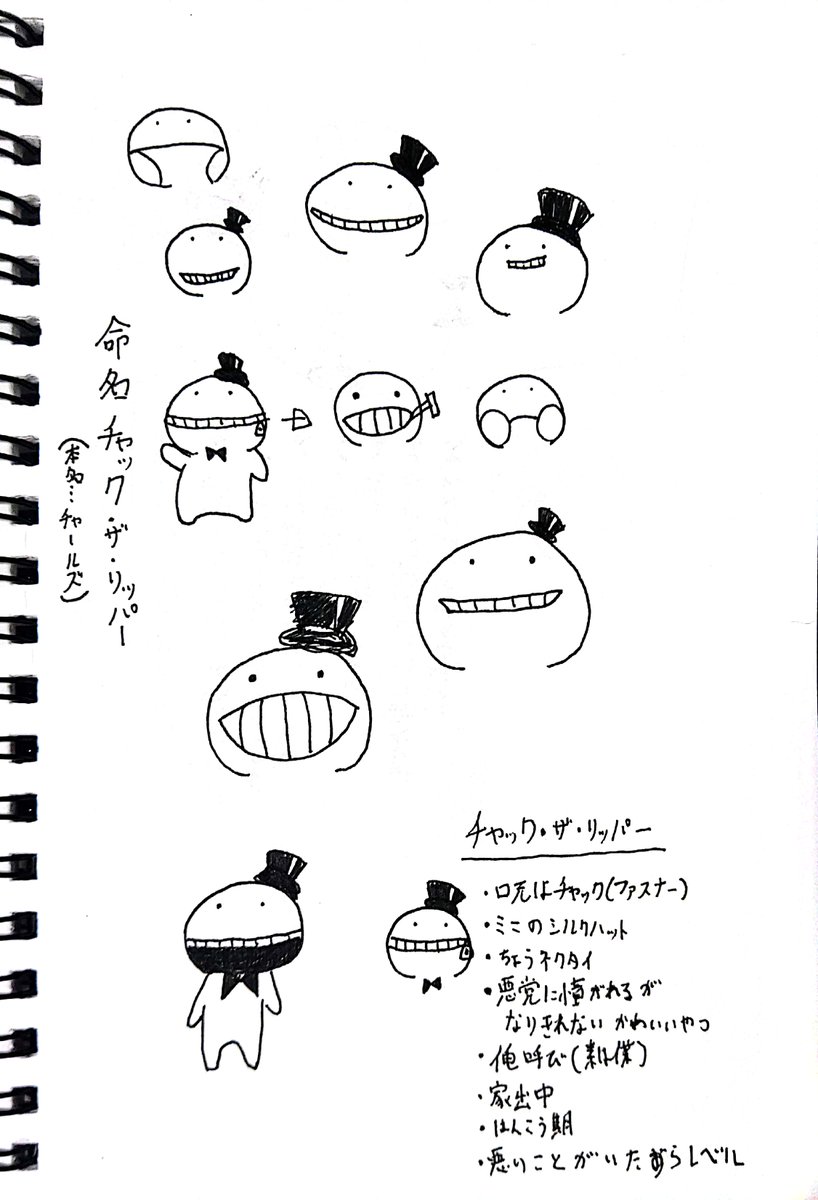 命名 チャック・ザ・リッパー
(本名…チャールズ)
チャック・ザ・リッパー
・口元はチャック(ファスナー)
・ミニのシルクハット
・ちょうネクタイ
・悪党に憧がれるが
なりきれないかわいいやつ
・俺呼び(素は僕)
・家出中
・はんこう期
・悪いことがいたずらレベル